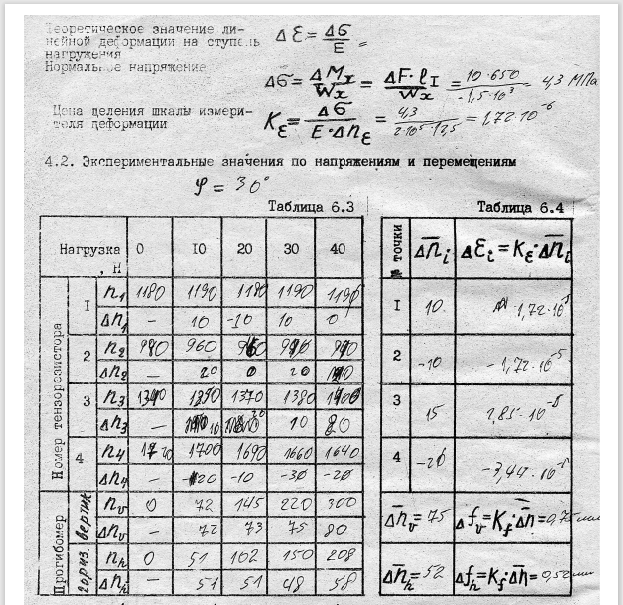 Теоретическое значение ли-
нейной деформации на ступень
нагружения
Δε = Δσ / E =
Нормальное напряжение
Δσ = ΔMx / Wx = ΔF·lI / Wx = 10·650 / 1,5·10³ = 4,3 МПа
Цена деления шкалы измери-
теля деформации
Kε = Δσ / E·Δnε = 4,3 / 2·10⁵·12,5 = 1,72·10⁻⁶
4.2. Экспериментальные значения по напряжениям и перемещениям
φ = 30°
Таблица 6.3
Нагрузка, Н 0 10 20 30 40
Номер тензорезистора
I n1 1180 1190 1180 1190 1190
Δn1 — 10 -10 10 0
2 n2 980 960
Δn2 — 20 0 20
3 n3 1370 1380
Δn3 — 10 20
4 n4 1700 1690 1660 1640
Δn4 — -20 -10 -30 -20
Прогибомер
вертик
nv 0 72 145 220 300
Δnv — 72 73 75 80
гориз
nh 0 51 102 150 208
Δnh — 51 51 48 58
Таблица 6.4
№ точки Δn̄i Δεi = Kε·Δn̄i
I 10 1,72·10⁻⁵
2 -10 -1,72·10⁻⁵
3 15
4 -20 -3,44·10⁻⁵
Δn̄v = 75 Δfv = Kf·Δn̄ = 0,75 мм
Δn̄h = 52 Δfh = Kf·Δn̄ = 0,52 мм